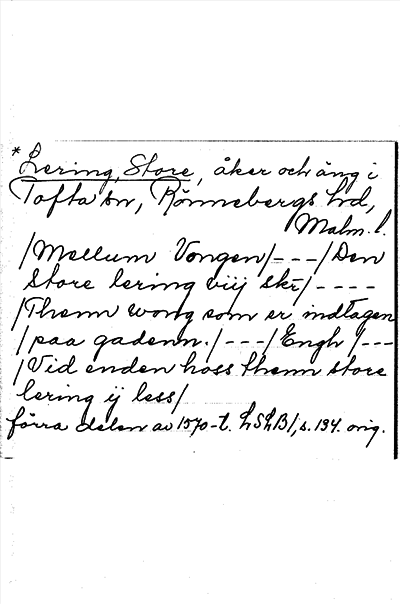 * Lering, Store, åker och äng i
Tofta sn, Rönnebergs hd,
Malm. l.
/Mellum Vongen/---/Den
Store lering viij skr/----
/Themm wong som er indtagen
/paa gadenn./---/Engh/---
/Vid enden hoss themm store
lering ij less/
förra delen av 1570-t. LSLB1, s. 134. orig.